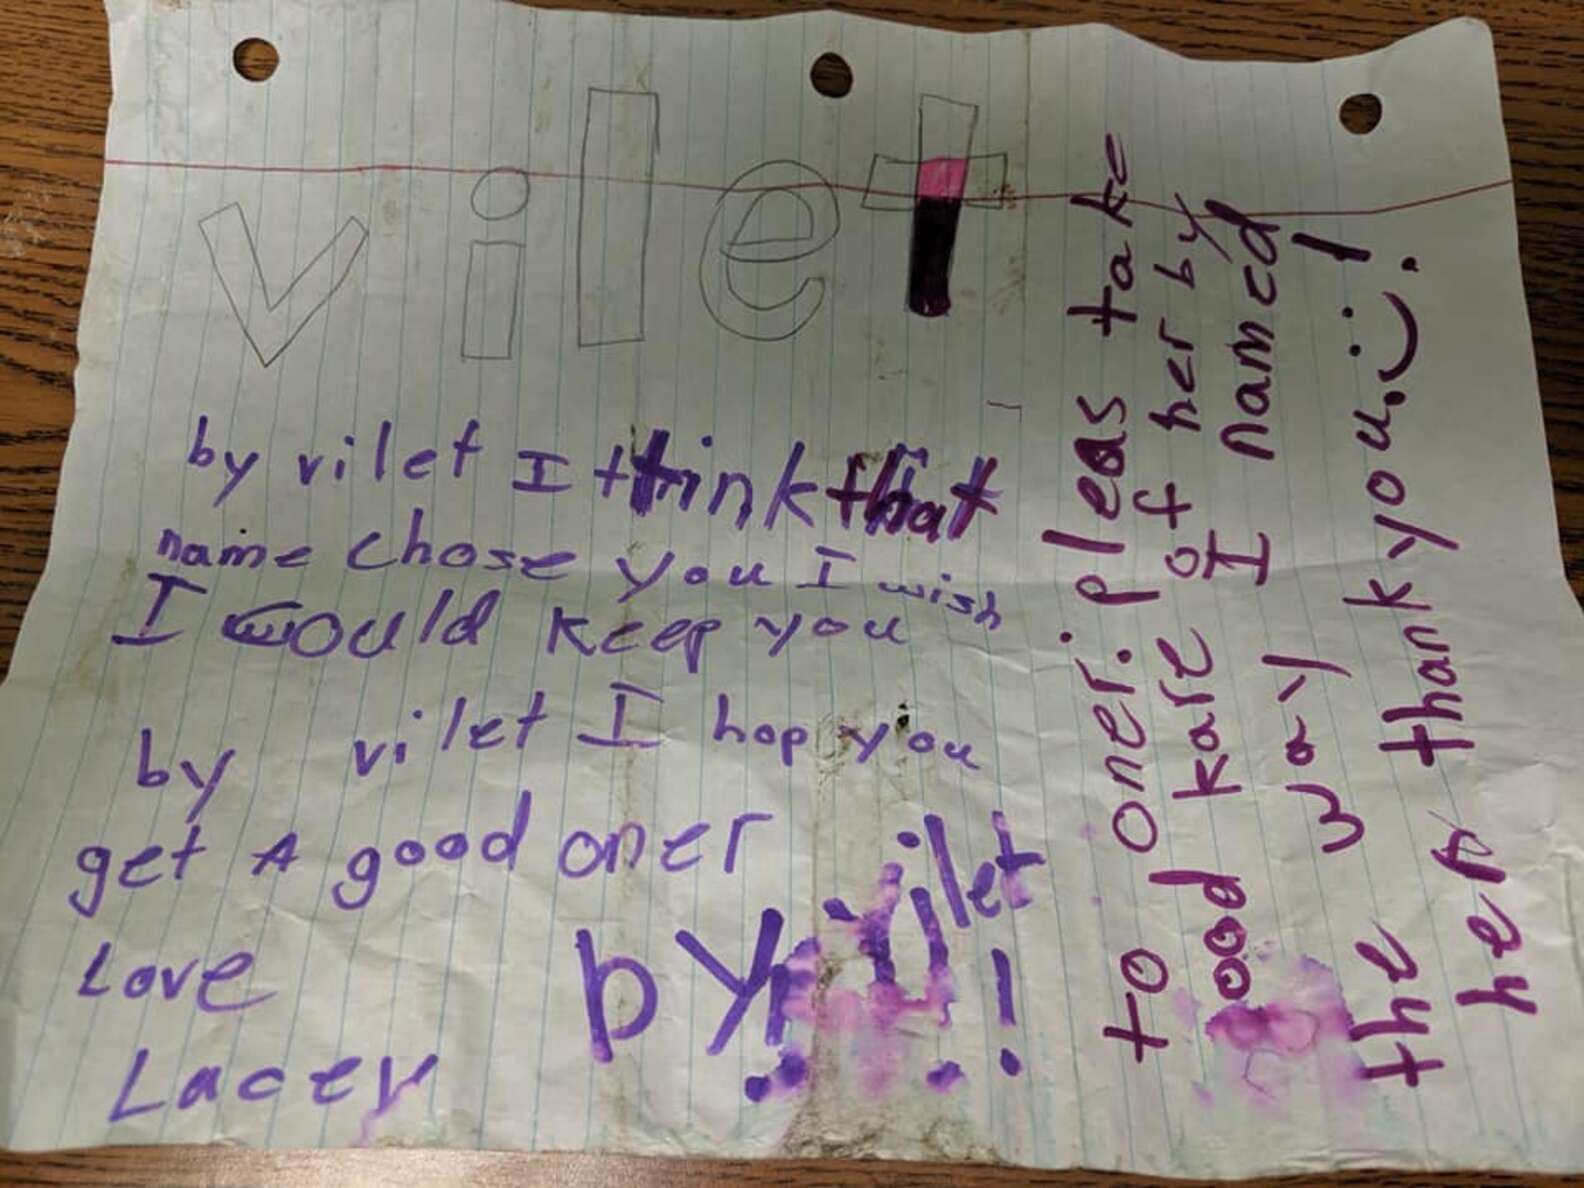 vilet
by vilet I think that
name chose you I wish
I would keep you
by vilet I hop you
get A good oner
Love
Lacey
by vilet!
to oner: pleas take
ood kare of her by
the way I named
her thank you. :)!